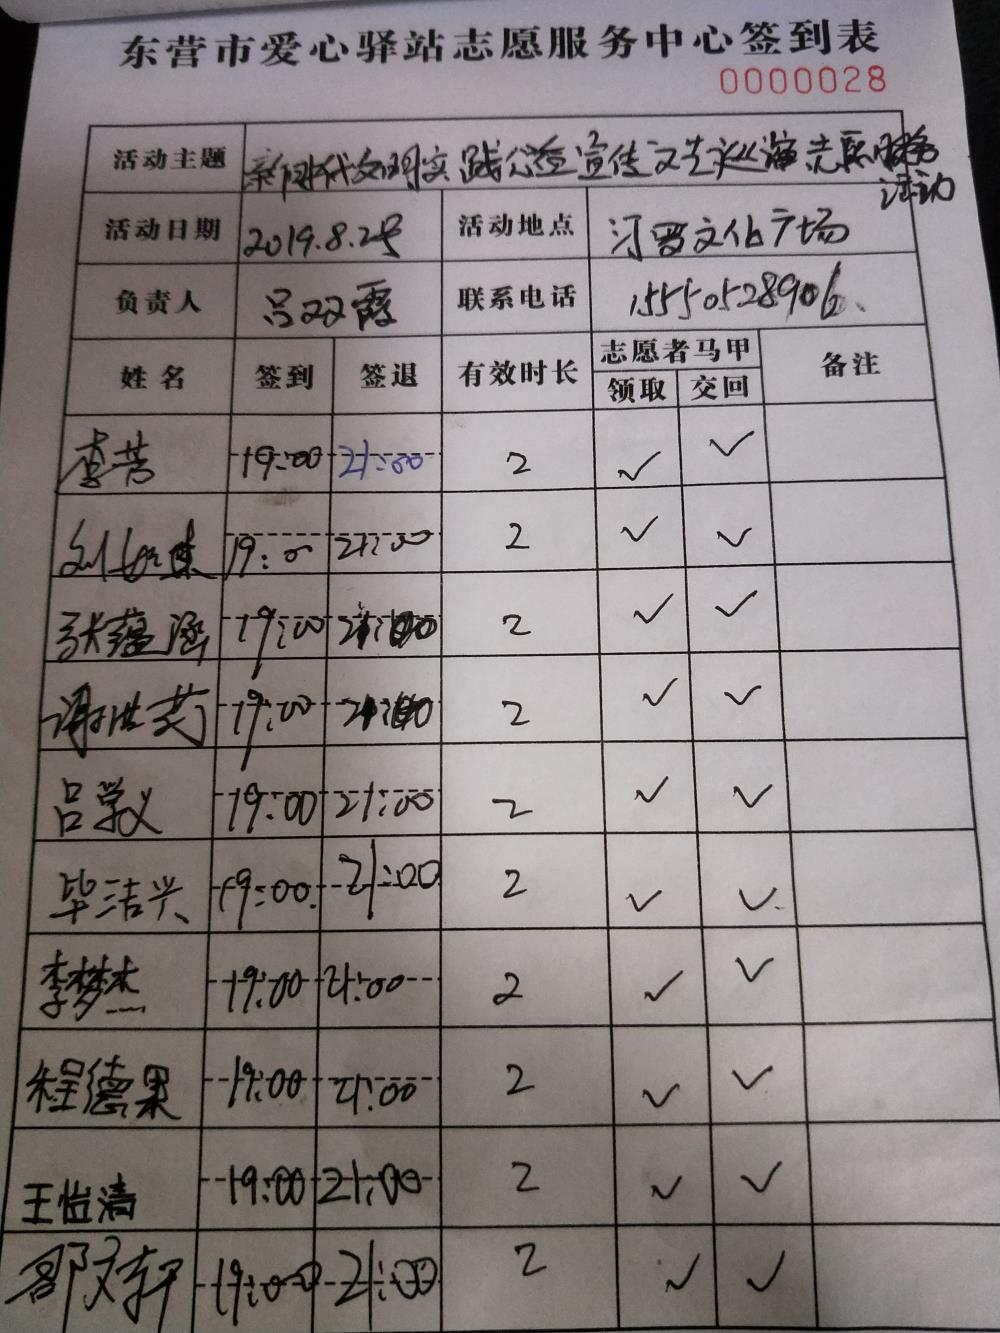 东营市爱心驿站志愿服务中心签到表
0000028
活动主题 新时代文明实践公益宣传文艺巡演志愿服务
活动
活动日期 2019.8.25号 活动地点 河西文化广场
负责人 吕双霞 联系电话 15550528906
姓名 签到 签退 有效时长 志愿者马甲 备注
领取 交回
李芳 19:00 21:00 2 ✓ ✓
刘 19:00 21:00 2 ✓ ✓
张蕴涵 19:00 21:00 2 ✓ ✓
谢洪芳 19:00 21:00 2 ✓ ✓
吕学义 19:00 21:00 2 ✓ ✓
毕洁兴 19:00 21:00 2 ✓ ✓
李梦杰 19:00 21:00 2 ✓ ✓
程德果 19:00 21:00 2 ✓ ✓
王怡清 19:00 21:00 2 ✓ ✓
邵文轩 19:00 21:00 2 ✓ ✓